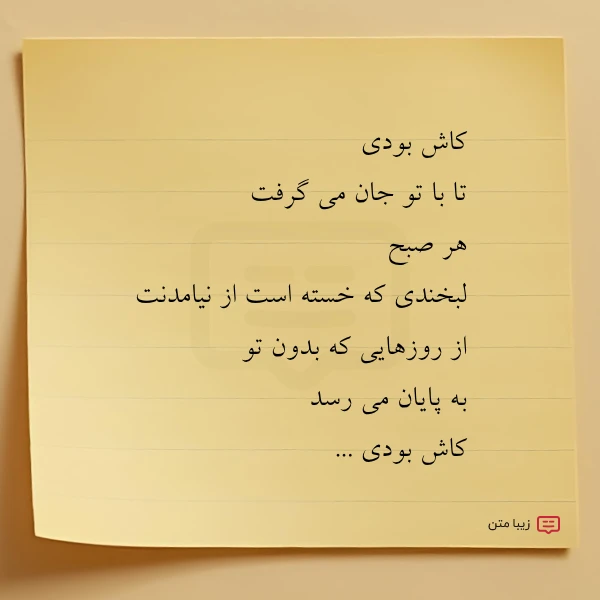 کاش بودی
تا با تو جان می گرفت
هر صبح
لبخندی که خسته است از نیامدنت
از روزهایی که بدون تو
به پایان می رسد
کاش بودی ...
زیبا متن